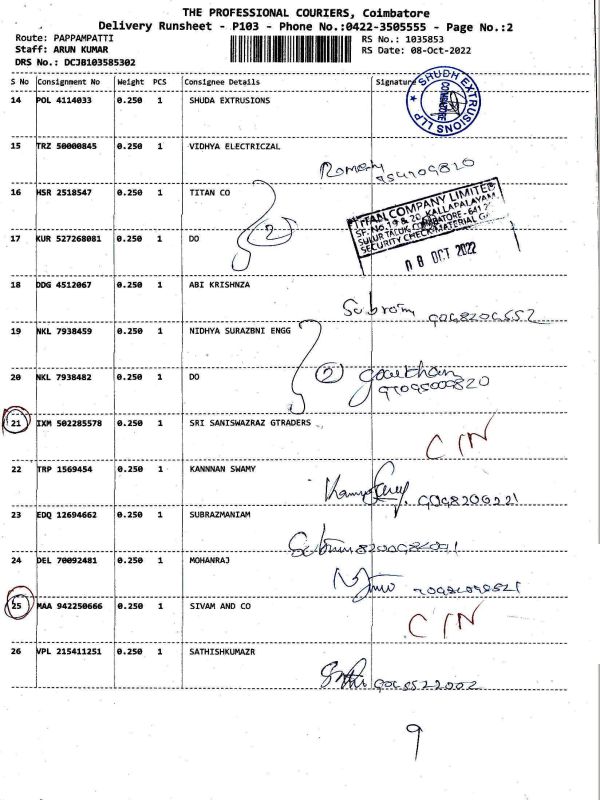 THE PROFESSIONAL COURIERS, Coimbatore
Delivery Runsheet - P103 - Phone No.:0422-3505555 - Page No.:2
Route: PAPPAMPATTI RS No.: 1035853
Staff: ARUN KUMAR RS Date: 08-Oct-2022
DRS No.: DCJB103585302
S No Consignment No Weight PCS Consignee Details Signature
14 POL 4114033 0.250 1 SHUDA EXTRUSIONS
SHUDH EXTRUSIONS LLP
COIMBATORE
15 TRZ 50000845 0.250 1 VIDHYA ELECTRICZAL
16 HSR 2518547 0.250 1 TITAN CO
2
TITAN COMPANY LIMITED
SF. No. 19 & 20, KALLAPALAYAM,
SULUR TALUK, COIMBATORE - 641
SECURITY CHECK/MATERIAL
08 OCT 2022
17 KUR 527268081 0.250 1 DO
18 DDG 4512067 0.250 1 ABI KRISHNZA
19 NKL 7938459 0.250 1 NIDHYA SURAZBNI ENGG
2
20 NKL 7938482 0.250 1 DO
21 IXM 502285578 0.250 1 SRI SANISWAZRAZ GTRADERS
C/N
22 TRP 1569454 0.250 1 KANNNAN SWAMY
23 EDQ 12694662 0.250 1 SUBRAZMANIAM
24 DEL 70092481 0.250 1 MOHANRAJ
25 MAA 942250666 0.250 1 SIVAM AND CO
C/N
26 VPL 215411251 0.250 1 SATHISHKUMAZR
9